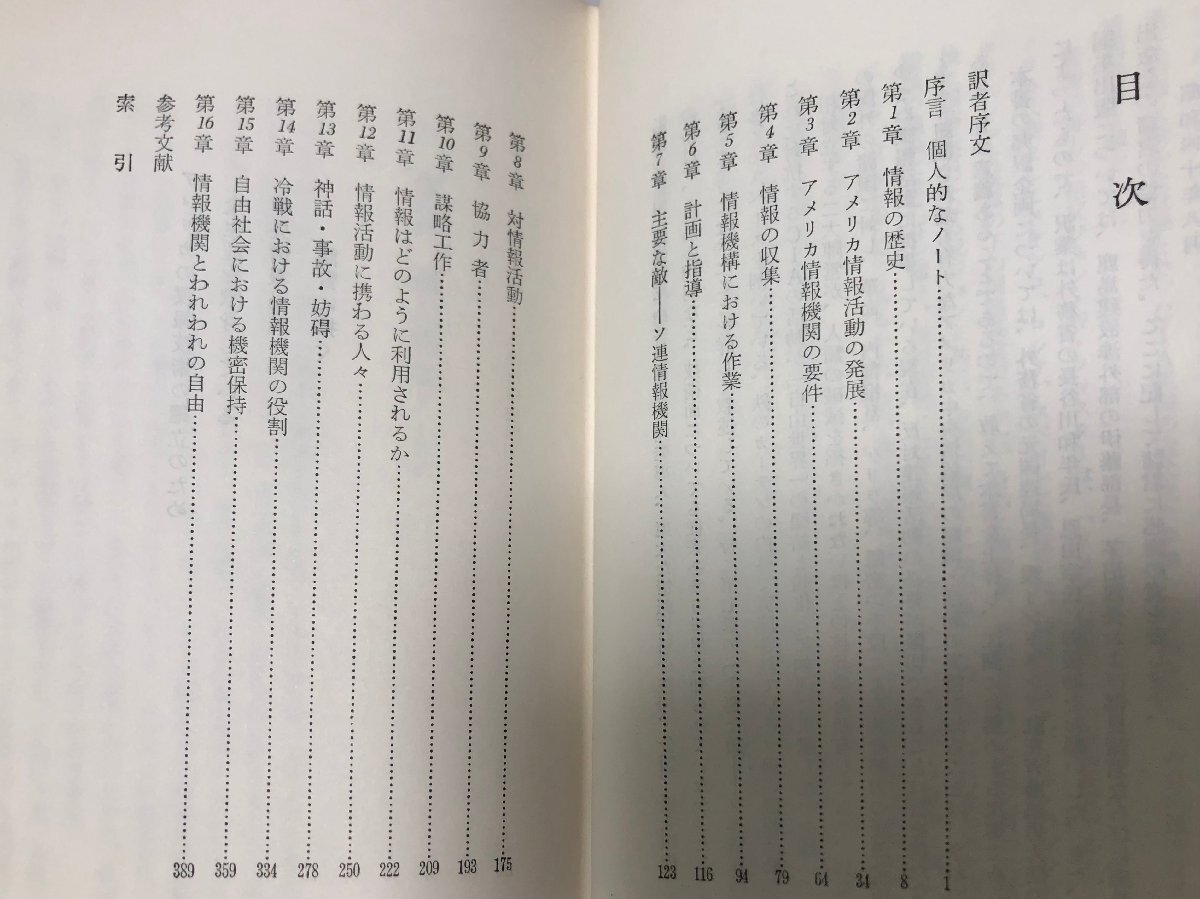 目次
訳者序文
序言――個人的なノート……1
第1章 情報の歴史……8
第2章 アメリカ情報活動の発展……34
第3章 アメリカ情報機関の要件……64
第4章 情報の収集……79
第5章 情報機構における作業……94
第6章 計画と指導……116
第7章 主要な敵――ソ連情報機関……123
第8章 対情報活動……175
第9章 協力者……193
第10章 謀略工作……209
第11章 情報はどのように利用されるか……222
第12章 情報活動に携わる人々……250
第13章 神話・事故・妨碍……278
第14章 冷戦における情報機関の役割……334
第15章 自由社会における機密保持……359
第16章 情報機関とわれわれの自由……389
参考文献
索引